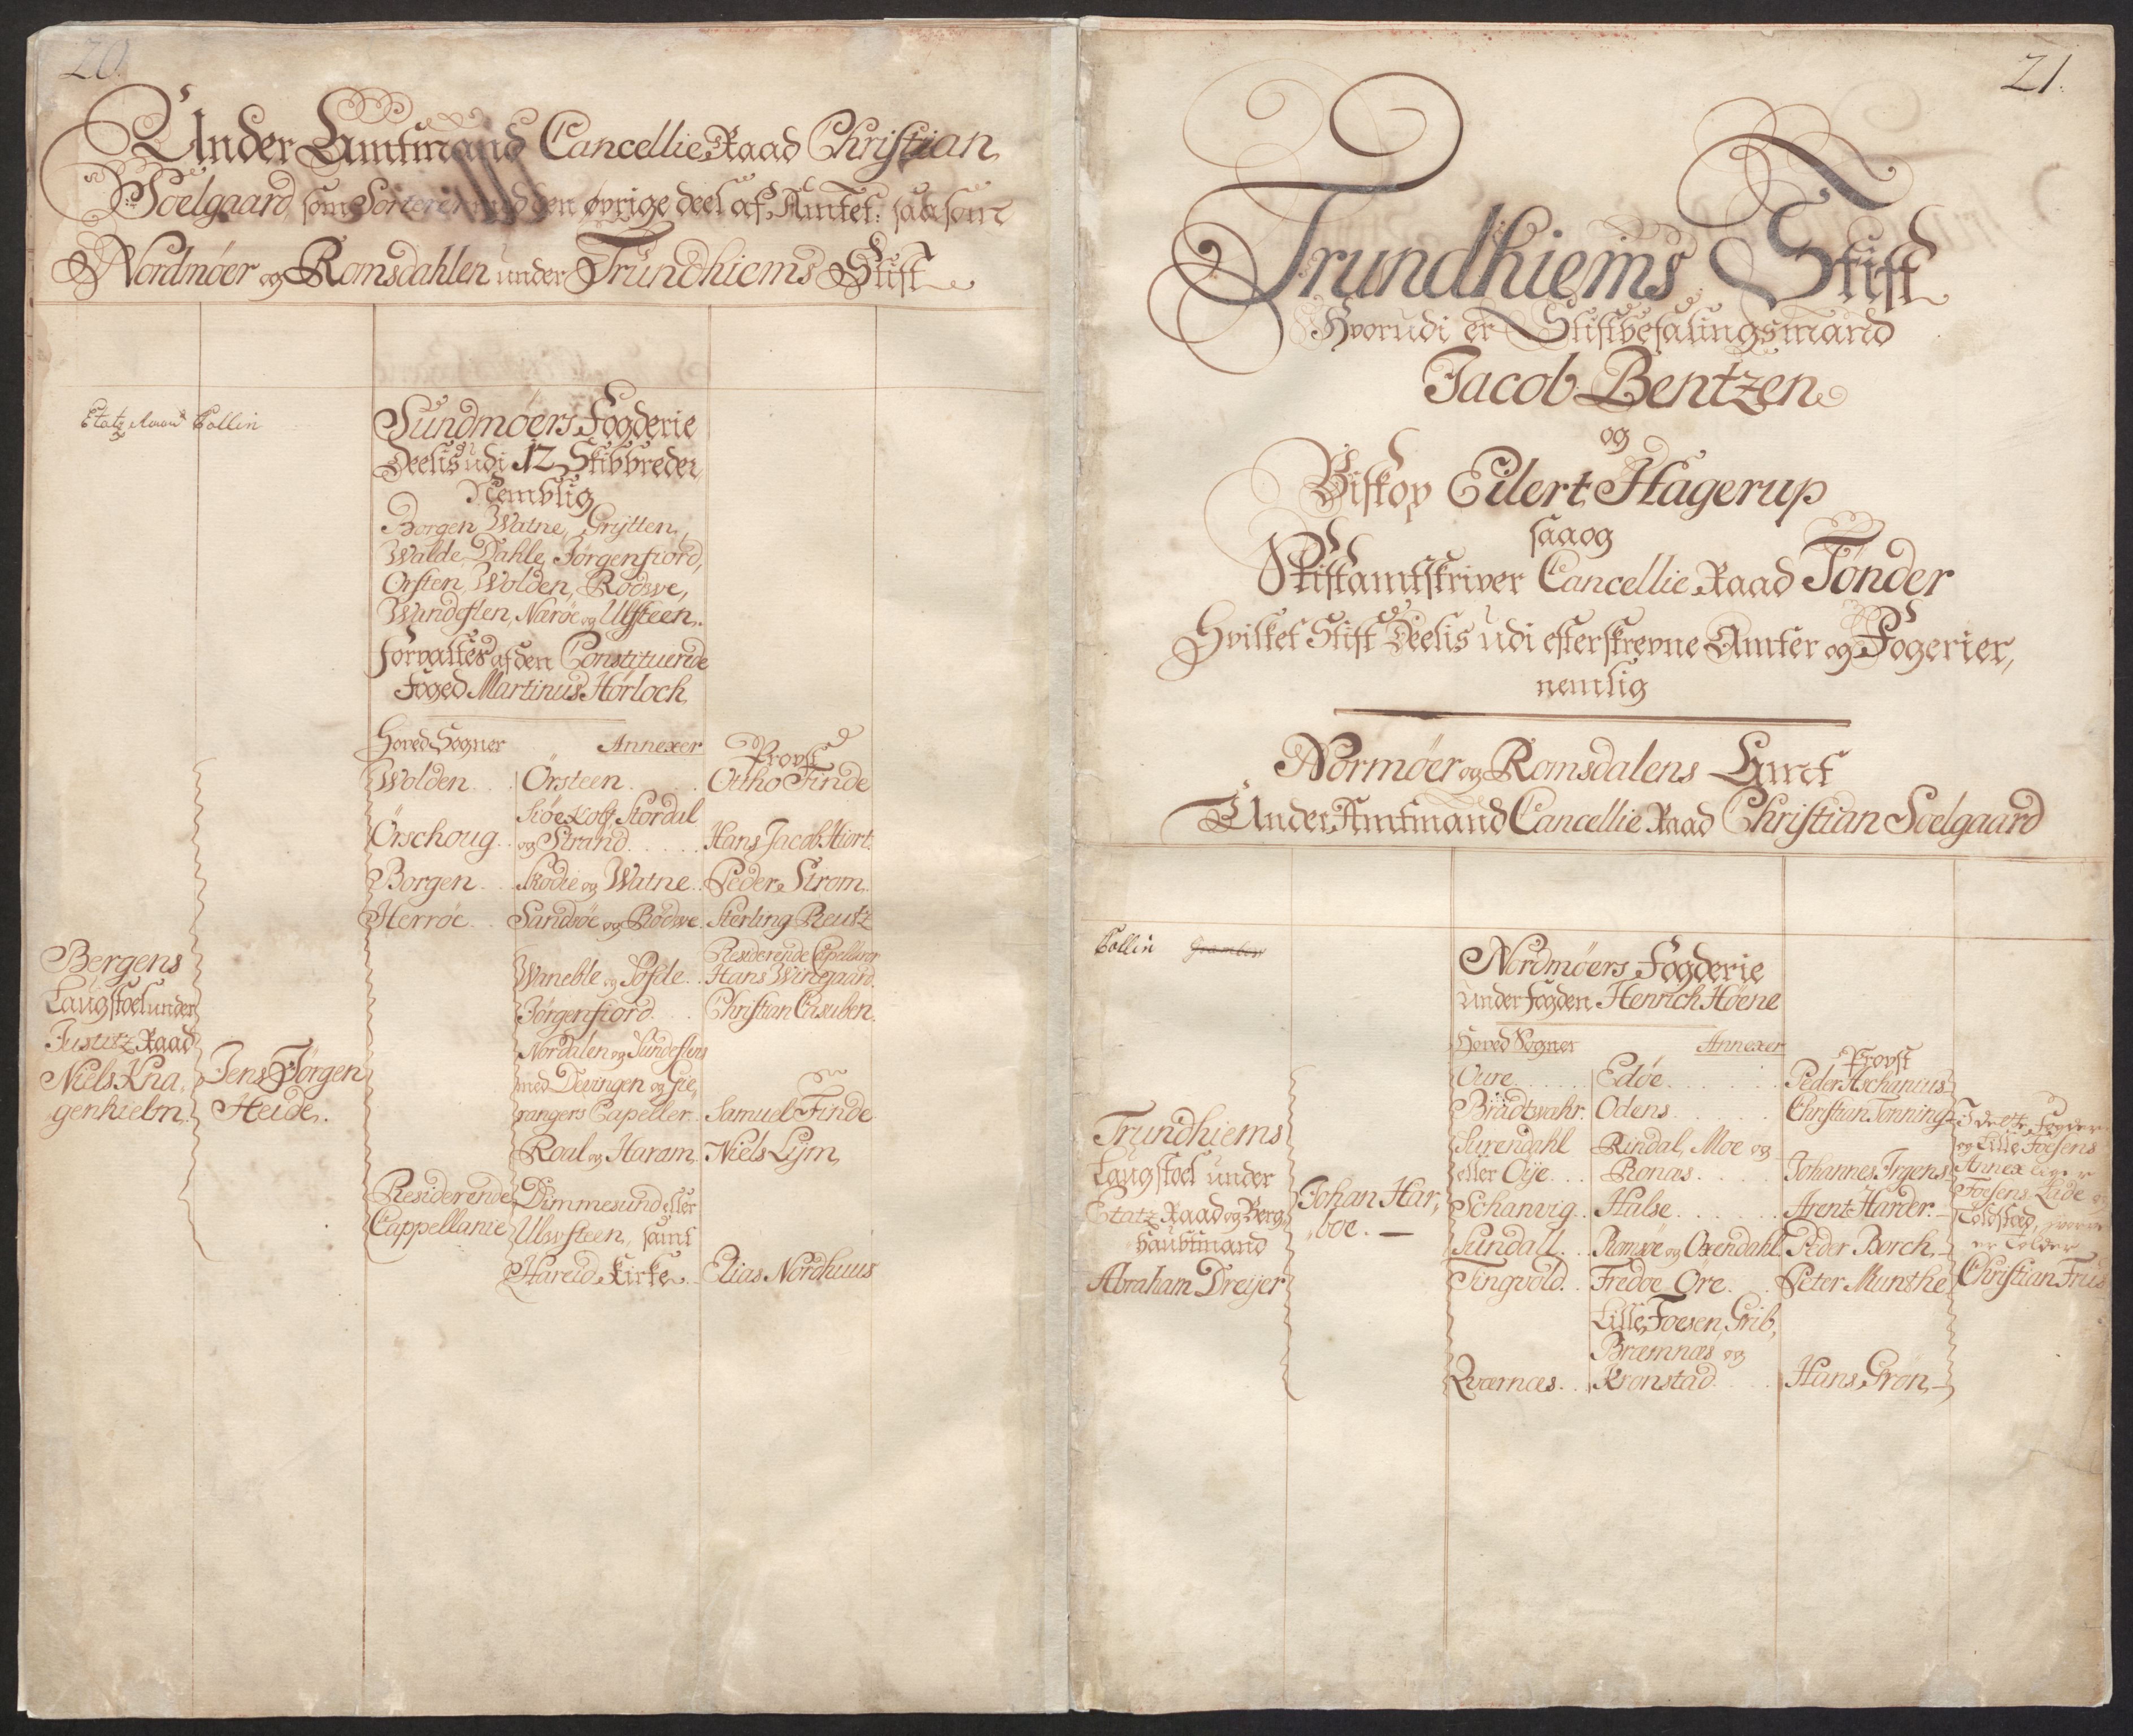 20.
Under Amtmand Cancellie Raad Christian
Soelgaard som Sorterer med den øvrige deel af Amtet: saasom
Nordmøer og Romsdahlen under Trundhiems Stift
Etatz Collin
Sundmøers Fogderie
Deelis udi 12 Skibbreder
Nemblig
Borgen, Watne, Grytten,
Walde, Dahle, Jørgenfiord,
Orsten, Wolden, Rødwe,
Wandeflen, Narøe og Ulfsteen.
forvaltes af den Constituerde
Foged Martinus Hørloch
Hoved Sogner Annexer Provst
Wolden . . Örsteen . . . Ottho Finde
Siöeholt, Stordal
Örschoug . . og Strand . . . . . Hans Jacob Hiort.
Borgen . . Skodie og Watne . . Peder Strom.
Herröe . . Sandsöe og Rödwe . Sterling Reutz
Residerende Capellaner
Waneble og Söfde . . Hans Winegaard.
Jörgenfiord . . . Christian Crisuben.
Nordalen og Sundeflen
med Devingen og Gie,
rangers Capeller . Samuel Finde
Roal og Haram. Niels Lym,
Residerende Dimmesund eller
Cappellanie Ulwsteen, samt
Hareid Kirke . . Elias Nordhuus
Bergens
Laugstoel under
Justitz Raad
Niels Kna,
genhielm.
Jens Jörgen
Heide.
21.
Trundhiems Stift
Hvorudi er Stiftbefalingsmand
Jacob Bentzen
og
Biskop Eilert Hagerup
saa og
Stiftamtskriver Cancellie Raad Tönder
Hvilket Stift Deelis udi efterskrevne Amter og Fogerier,
nemlig
Normøer og Romsdalens Amt
Under Amtmand Cancellie Raad Christian Soelgaard
Collin
Nordmøers Fogderie
under fogden Henrich Høene
Hoved Sogner Annexer Provst
Oure . . . . Edöe . . . . . Peder Aschanius
Brüdtwahr. Odens . . . . . Christian Tonning
Surendahl Rindal, Moe og
eller Oÿe . . . Ronas . . . . Johannes Irgens
Schanvig . . Halse . . . . . . Arent Harder.
Sundall . . Romsöe og Oxendahl. Peder Borch.
Tingvold . . Fredöe Ore . . Peter Munthe
Lille Foesen, Grib,
Bræmnæs og
Qværnæs . . Kronstad . . . Hans Grön,
Trundhiems
Laugstoel under
Etatz Raad og Berg,
haubtmand
Abraham Dreÿer
Johan Har,
boe. —
I dette Fogder
og Lille Foesens
Annex liger
Foesens Lade
Toldsted,
er Tolder
Christian Friis